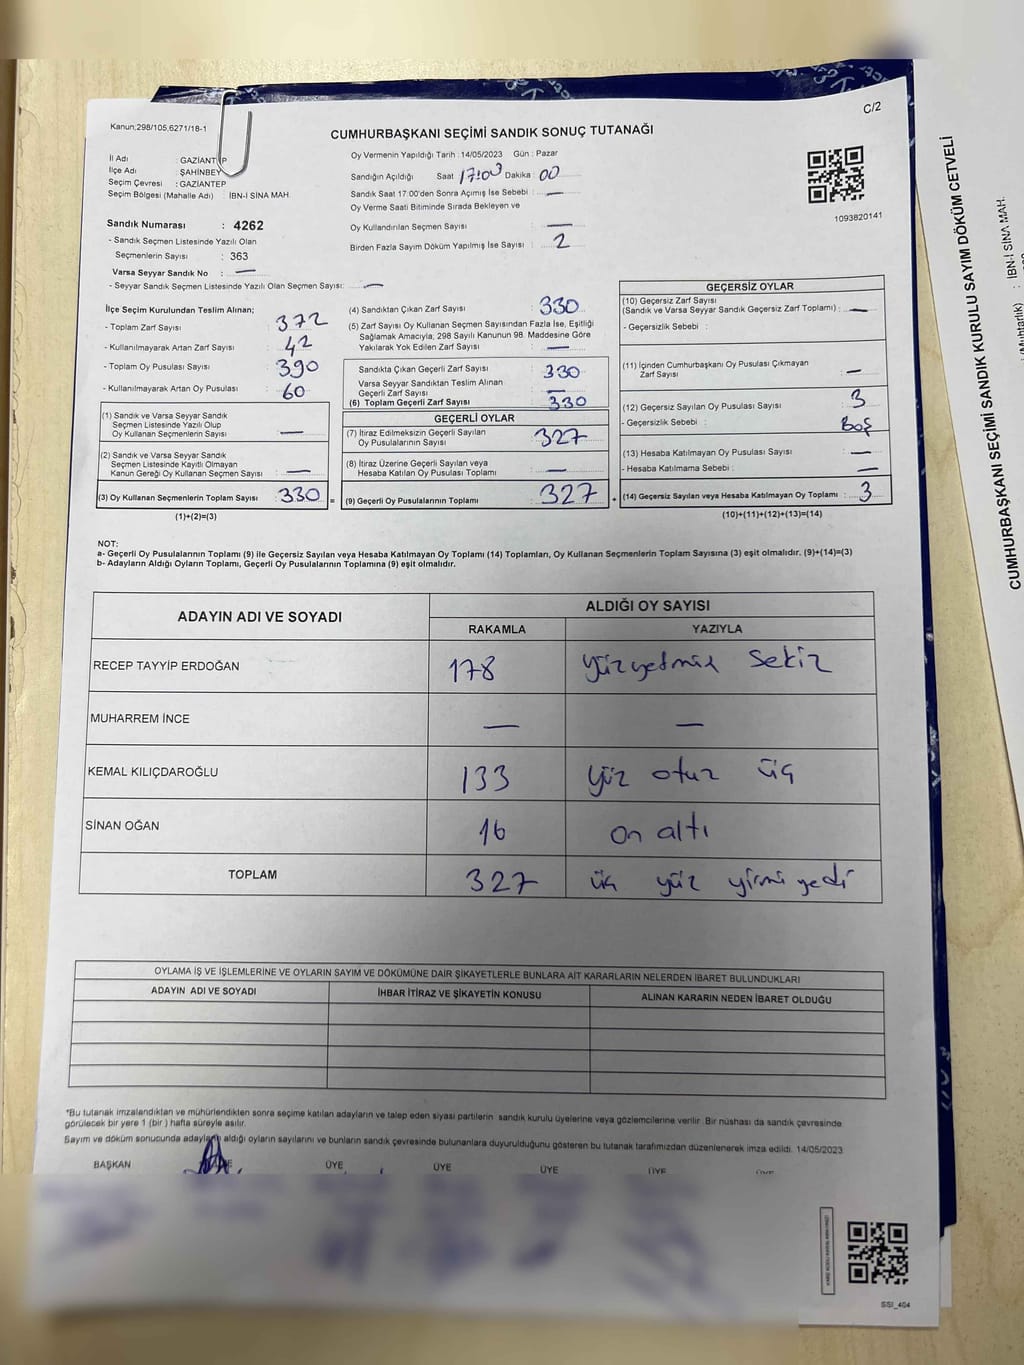 C/2
Kanun;298/105,6271/18-1
CUMHURBAŞKANI SEÇİMİ SANDIK SONUÇ TUTANAĞI
İl Adı : GAZİANTEP
İlçe Adı : ŞAHİNBEY
Seçim Çevresi : GAZİANTEP
Seçim Bölgesi (Mahalle Adı) : İBN-İ SİNA MAH.
Oy Vermenin Yapıldığı Tarih : 14/05/2023 Gün : Pazar
Sandığın Açıldığı Saat 17:00 Dakika : 00
Sandık Saat 17:00'den Sonra Açımış İse Sebebi : —
Oy Verme Saati Bitiminde Sırada Bekleyen ve
Oy Kullandırılan Seçmen Sayısı : —
Birden Fazla Sayım Döküm Yapılmış İse Sayısı : 2
1093820141
Sandık Numarası : 4262
- Sandık Seçmen Listesinde Yazılı Olan
Seçmenlerin Sayısı : 363
Varsa Seyyar Sandık No : —
- Seyyar Sandık Seçmen Listesinde Yazılı Olan Seçmen Sayısı: —
İlçe Seçim Kurulundan Teslim Alınan;
- Toplam Zarf Sayısı : 372
- Kullanılmayarak Artan Zarf Sayısı : 42
- Toplam Oy Pusulası Sayısı : 390
- Kullanılmayarak Artan Oy Pusulası : 60
(1) Sandık ve Varsa Seyyar Sandık
Seçmen Listesinde Yazılı Olup
Oy Kullanan Seçmenlerin Sayısı : —
(2) Sandık ve Varsa Seyyar Sandık
Seçmen Listesinde Kayıtlı Olmayan
Kanun Gereği Oy Kullanan Seçmen Sayısı : —
(3) Oy Kullanan Seçmenlerin Toplam Sayısı : 330 =
(1)+(2)=(3)
(4) Sandıktan Çıkan Zarf Sayısı : 330
(5) Zarf Sayısı Oy Kullanan Seçmen Sayısından Fazla İse, Eşitliği
Sağlamak Amacıyla, 298 Sayılı Kanunun 98. Maddesine Göre
Yakılarak Yok Edilen Zarf Sayısı : —
Sandıkta Çıkan Geçerli Zarf Sayısı : 330
Varsa Seyyar Sandıktan Teslim Alınan
Geçerli Zarf Sayısı : —
(6) Toplam Geçerli Zarf Sayısı : 330
GEÇERLİ OYLAR
(7) İtiraz Edilmeksizin Geçerli Sayılan
Oy Pusulalarının Sayısı : 327
(8) İtiraz Üzerine Geçerli Sayılan veya
Hesaba Katılan Oy Pusulası Toplamı : —
(9) Geçerli Oy Pusulalarının Toplamı : 327 +
GEÇERSİZ OYLAR
(10) Geçersiz Zarf Sayısı
(Sandık ve Varsa Seyyar Sandık Geçersiz Zarf Toplamı) : —
- Geçersizlik Sebebi :
(11) İçinden Cumhurbaşkanı Oy Pusulası Çıkmayan
Zarf Sayısı : —
(12) Geçersiz Sayılan Oy Pusulası Sayısı : 3
- Geçersizlik Sebebi : Boş
(13) Hesaba Katılmayan Oy Pusulası Sayısı : —
- Hesaba Katılmama Sebebi : —
(14) Geçersiz Sayılan veya Hesaba Katılmayan Oy Toplamı : 3
(10)+(11)+(12)+(13)=(14)
NOT:
a- Geçerli Oy Pusulalarının Toplamı (9) ile Geçersiz Sayılan veya Hesaba Katılmayan Oy Toplamı (14) Toplamları, Oy Kullanan Seçmenlerin Toplam Sayısına (3) eşit olmalıdır. (9)+(14)=(3)
b- Adayların Aldığı Oyların Toplamı, Geçerli Oy Pusulalarının Toplamına (9) eşit olmalıdır.
ADAYIN ADI VE SOYADI
ALDIĞI OY SAYISI
RAKAMLA YAZIYLA
RECEP TAYYİP ERDOĞAN 178 yüz yetmiş sekiz
MUHARREM İNCE — —
KEMAL KILIÇDAROĞLU 133 yüz otuz üç
SİNAN OĞAN 16 on altı
TOPLAM 327 üç yüz yirmi yedi
OYLAMA İŞ VE İŞLEMLERİNE VE OYLARIN SAYIM VE DÖKÜMÜNE DAİR ŞİKAYETLERLE BUNLARA AİT KARARLARIN NELERDEN İBARET BULUNDUKLARI
ADAYIN ADI VE SOYADI İHBAR İTİRAZ VE ŞİKAYETİN KONUSU ALINAN KARARIN NEDEN İBARET OLDUĞU
*Bu tutanak imzalandıktan ve mühürlendikten sonra seçime katılan adayların ve talep eden siyasi partilerin sandık kurulu üyelerine veya gözlemcilerine verilir. Bir nüshası da sandık çevresinde
görülecek bir yere 1 (bir ) hafta süreyle asılır.
Sayım ve döküm sonucunda adayların aldığı oyların sayılarını ve bunların sandık çevresinde bulunanlara duyurulduğunu gösteren bu tutanak tarafımızdan düzenlenerek imza edildi. 14/05/2023
BAŞKAN ÜYE ÜYE ÜYE ÜYE ÜYE ÜYE
SSI_404
CUMHURBAŞKANI SEÇİMİ SANDIK KURULU SAYIM DÖKÜM CETVELİ
: İBN-İ SİNA MAH.